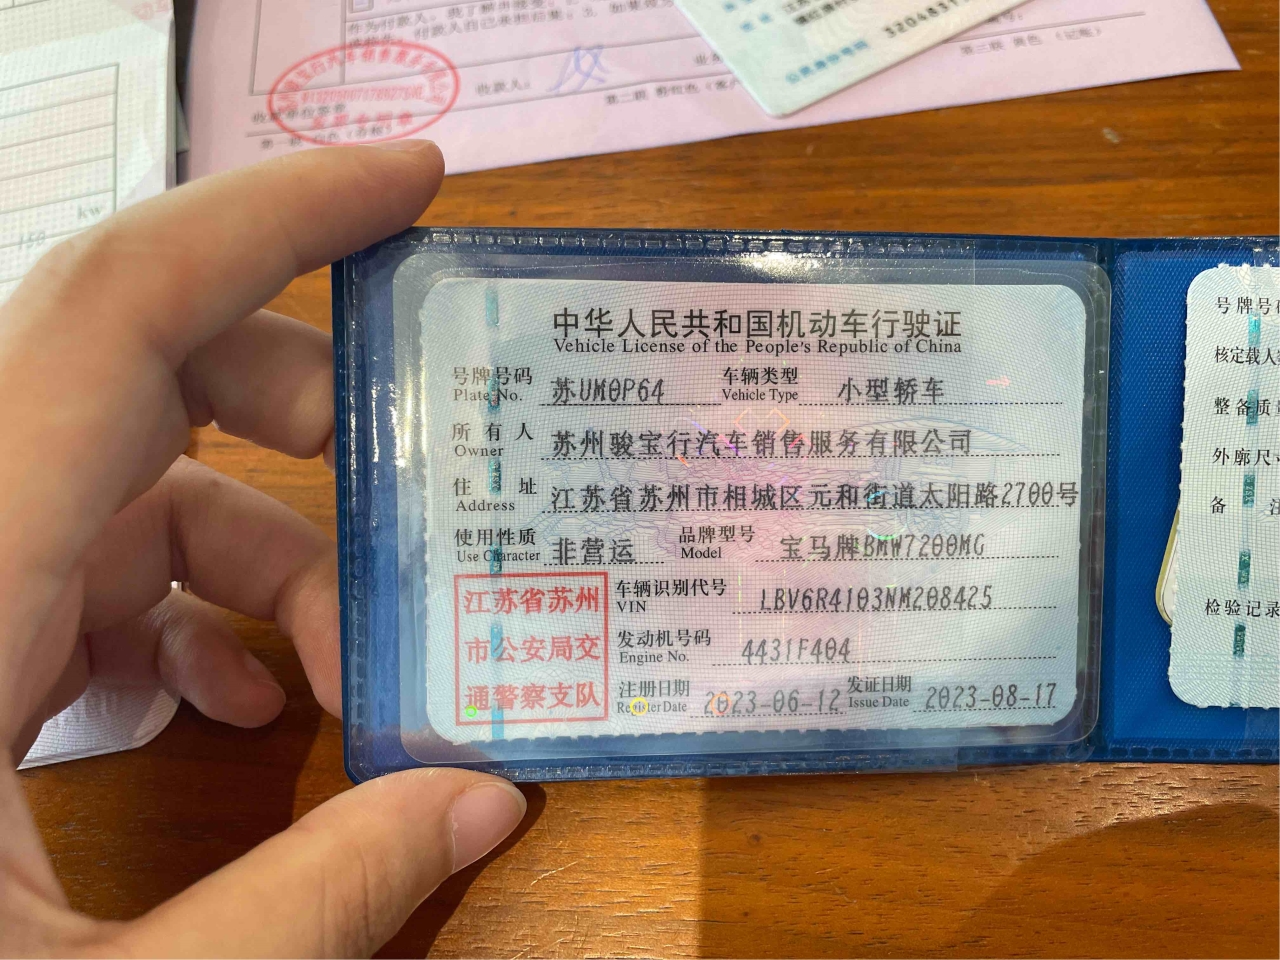 kw
收款人:
第三联 黄色 (记账)
320483
中华人民共和国机动车行驶证
Vehicle License of the People's Republic of China
号牌号码 苏UM0P64 车辆类型 小型轿车
Plate No. Vehicle Type
所有人 苏州骏宝行汽车销售服务有限公司
Owner
住址 江苏省苏州市相城区元和街道太阳路2700号
Address
使用性质 非营运 品牌型号 宝马牌BMW7200MG
Use Character Model
江苏省苏州
市公安局交
通警察支队
车辆识别代号 LBV6R4103NM208425
VIN
发动机号码 4431F404
Engine No.
注册日期 2023-06-12 发证日期 2023-08-17
Register Date Issue Date
号牌号
核定载人
整备质
外廓尺
备 注
检验记录